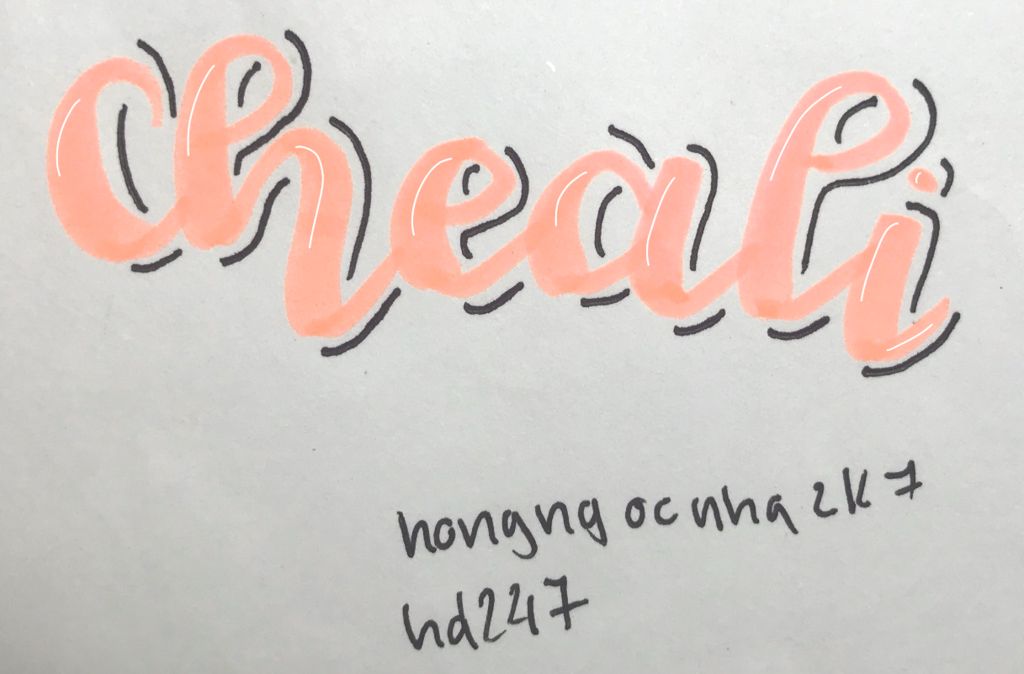 Cheali
hongng ocnha 2k7
hd247